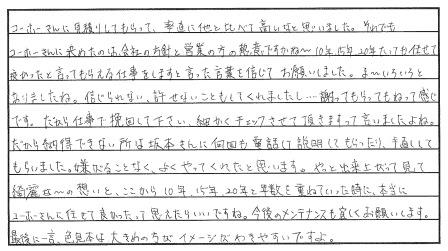 ユーホーさんに見積りしてもらって、率直に他と比べて高いなと思いました。それでも
ユーホーさんに決めたのは、会社の方針と営業の方の熱意ですかね〜10年、15年、20年たっても任せて
良かったと言ってもらえる仕事をしますと言った言葉を信じてお願いしました。ま〜いろいろと
ありましたね。信じられない、許せないこともしてくれましたし…謝ってもらってもねって感じ
です。だから仕事で挽回して下さい、細かくチェックさせて頂きますって言いましたよね。
だから納得できない所は坂本さんに何回も電話して説明してもらったり、手直しして
もらいました。嫌がることなく、よくやってくれたと思います。やっと出来上がって見て
綺麗な〜の想いと、ここから10年、15年、20年と年数を重ねていった時に、本当に
ユーホーさんに任せて良かったって思えたらいいですね。今後のメンテナンスも宜しくお願いします。
最後に一言、色見本は大きめの方がイメージがわきやすいですよ。